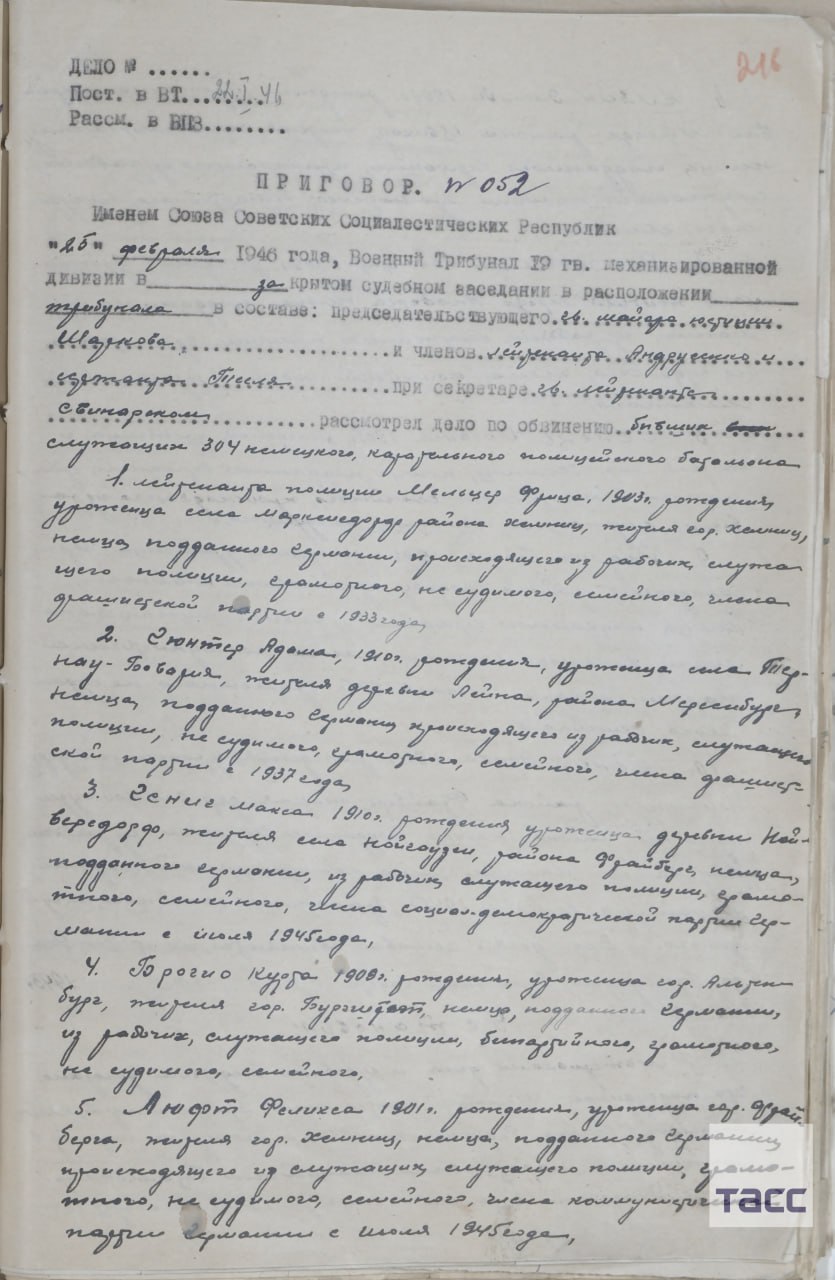 216
ДЕЛО № ......
Пост. в ВТ. 22.I.46
Рассм. в ВПЗ........
ПРИГОВОР. № 052
Именем Союза Советских Социалестических Республик
"25" февраля 1946 года, Военный Трибунал 19 гв. механизированной
дивизии в за крытом судебном заседании в расположении
трибунала в составе: председательствующего гв. майора юстиции
Шаркова, и членов лейтенанта Андрусенко и
сержанта Теля при секретаре гв. лейтенанте
Свинарском рассмотрел дело по обвинению бывших
служащих 304 немецкого, карательного полицейского батальона
1. лейтенанта полиции Мельцер Фрица, 1903г. рождения,
уроженца села района Хемниц, жителя гор. Хемниц,
немца, подданного Германии, происходящего из рабочих, служа
щего полиции, грамотного, не судимого, семейного, члена
фашистской партии с 1933 года,
2. Гюнтер Адама, 1910г. рождения, уроженца села Тер-
нау-Бовария, жителя деревни Лейна, района Мерсебург,
немца, подданного Германии, происходящего из рабочих, служащего
полиции, не судимого, грамотного, семейного, члена фашист-
ской партии с 1937 года,
3. Гениг Макса 1910г. рождения уроженца деревни Ной-
вередорф, жителя села Нойгаузен, района Фрайберг, немца,
подданного Германии, из рабочих, служащего полиции, грамо-
тного, семейного, члена социал-демократической партии Гер-
мании с июля 1945 года,
4. Брогио Курта 1908г. рождения, уроженца гор. Альтен-
бург, жителя гор. немца, подданного Германии,
из рабочих, служащего полиции, безпартийного, грамотного,
не судимого, семейного,
5. Люфт Феликса 1901г. рождения, уроженца гор. Фрай-
берга, жителя гор. Хемниц, немца, подданного Германии,
происходящего из служащих, служащего полиции, грамо-
тного, не судимого, семейного, члена коммунистической
партии Германии с июля 1945 года,
ТАСС